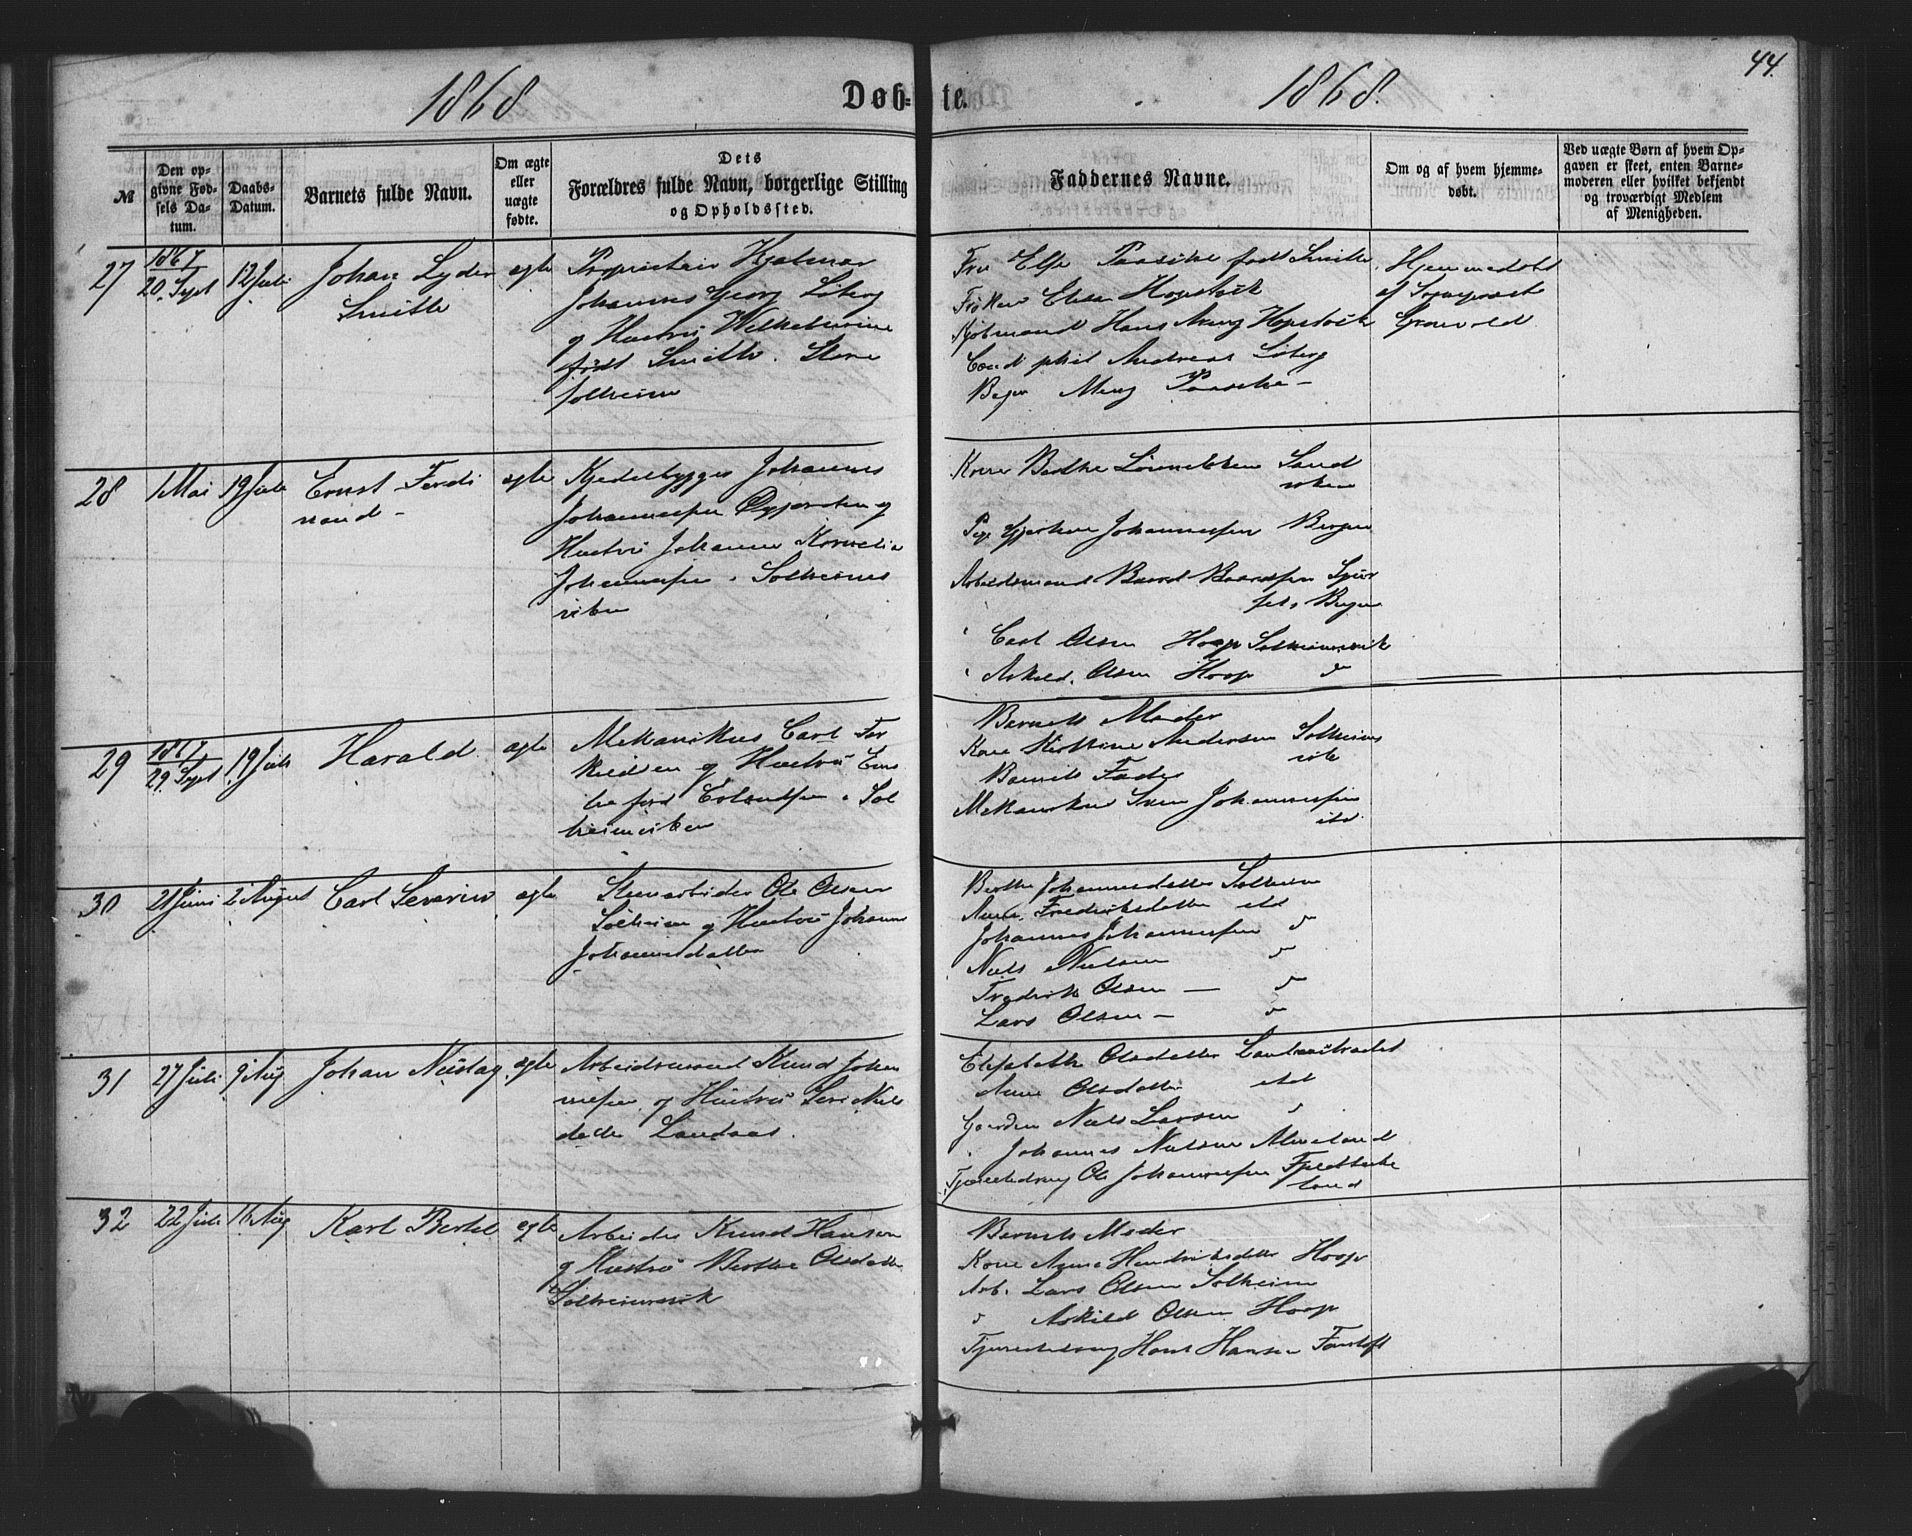 1868
Døb-
te.
1868.
44.
№
Den op-
givne Fød-
sels Da-
tum.
Daabs-
Datum.
Barnets fulde Navn.
Om ægte
eller
uægte
fødte.
Dets
Forældres fulde Navn, borgerlige Stilling
og Opholdssted.
Faddernes Navne.
Om og af hvem hjemme-
døbt.
Ved uægte Børn af hvem Op-
gaven er skeet, enten Barne-
moderen eller hvilket bekjendt
og troværdigt Medlem
af Menigheden.
27
1867
20. Sept
12 Juli
Johan Lyder
Smith
ægte
Proprietair Hjalmar
Johannes Georg Løberg
og Hustru Wilhelmine
født Smith. Store
solheim
Fru Else Paasche født Smith
Frøken Elisa Hopstock
Kjøbmand Hans Hopstock
Cand phil Andreas Løberg
Paasche -
Hjemmedøbt
af Sogneprest
Grønvold
28
1 Mai
19 Juli
Ernst Ferdi
nand -
ægte
Kjedelbygger Johannes
Johannessen og
Hustru Johanne Kornelia
Johannessen . Solheims
viken
Kone Berthe Sand
viken
Pige Johannessen Bergen
Arbeidsmand Baard Baardsen
Bergen
Carl Olsen Hoop Solheimsvik
Askild. Olsen Hoop
29
1867
29. Sept
19 Juli
Harald
ægte
Mekanikus Carl Ter
kildsen og Hustru Em
lie . Sol
heimsviken
Barnets Moder
Kone Kirstine Andersen Solheims
vik
Barnets Fader
Mekanikus Sven Johannessen
itd.
30
21 Juni
2 August
Carl Severin
ægte
Stenarbeider Ole Olsen
Solheim og Hustru Johanne
Johannesdatter
Berthe Johannesdatter Solheim
Anne Fredriksdatter itd
Johannes Johannessen
Niels Nielsen
Fredrik Olsen -
Lars Olsen -
31
27 Juli
9 Aug
Johan Nicolay
ægte
Arbeidsmand Knud Johan
nesen og Hustru Siri Niels
datter Landaas.
Elisabeth Olsdatter
Anne Olsdatter itd
Niels Larsen
Johannes Nielsen Alveland
Tjenestedreng Ole Johannessen
land
32
22 Juli
16 Aug
Karl Bertel
ægte
Arbeider Knud Hansen
og Hustru Berthe Olsdatter
Solheimsvik
Barnets Moder
Kone Anna Hendriksdatter Hoop
Arb. Lars Olsen Solheim
Askild Olsen Hoop
Tjenestedreng Hans Hansen Fantoft